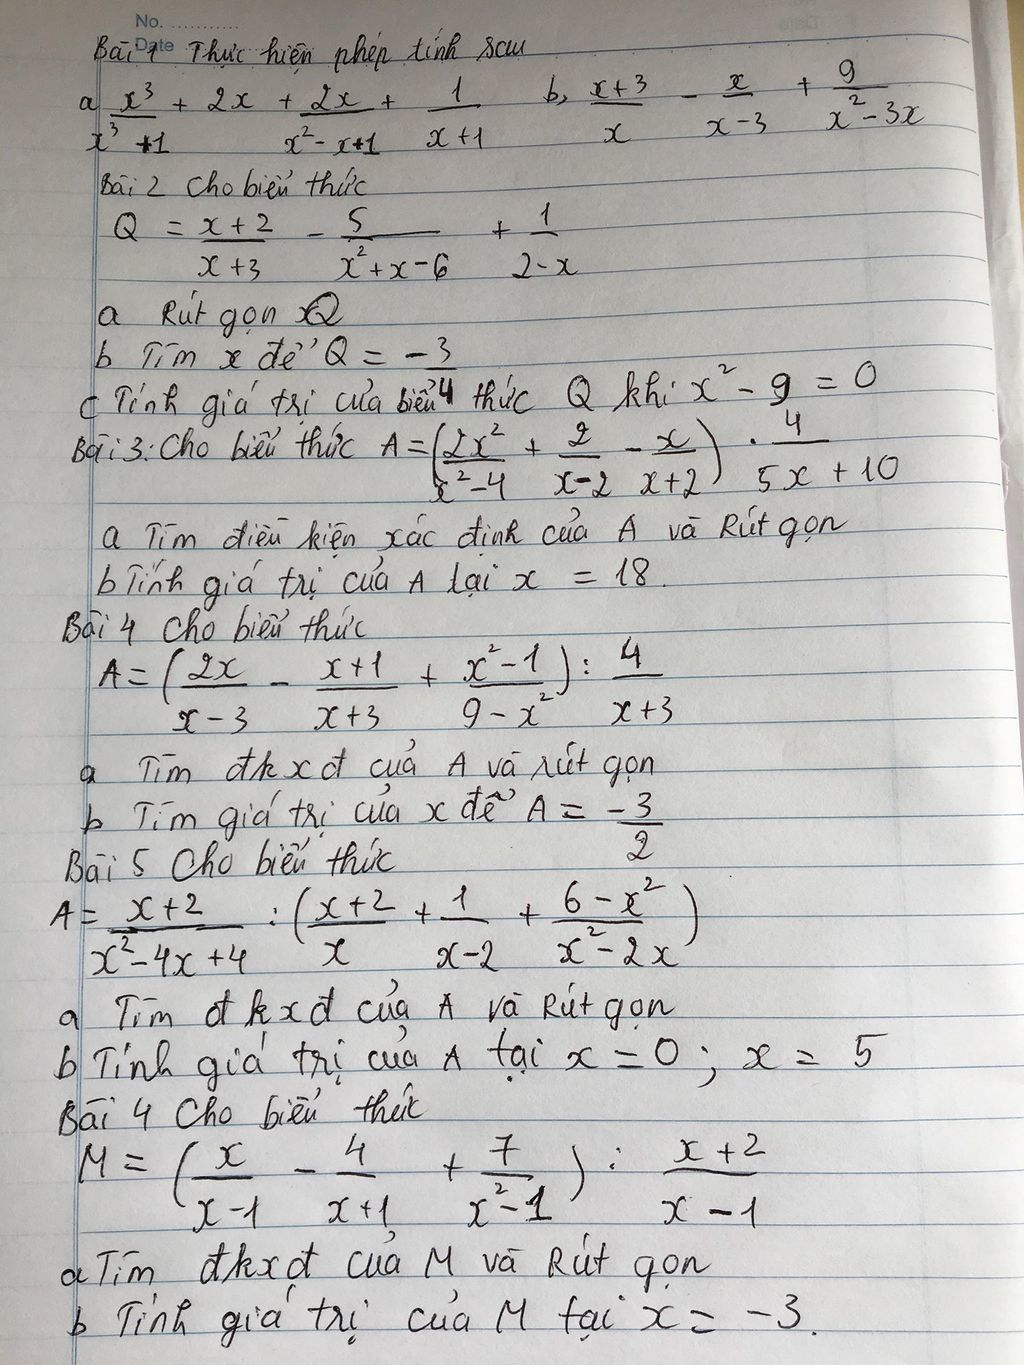 No. ............
Date
Bài 1 Thực hiện phép tính sau
a x³/(x³+1) + 2x + 2x/(x²-x+1) + 1/(x+1) b, (x+3)/x - x/(x-3) + 9/(x²-3x)
Bài 2 Cho biểu thức
Q = (x+2)/(x+3) - 5/(x²+x-6) + 1/(2-x)
a Rút gọn Q
b Tìm x để Q = -3/4
c Tính giá trị của biểu thức Q khi x² - 9 = 0
Bài 3: Cho biểu thức A = (2x²/(x²-4) + 2/(x-2) - x/(x+2)) . 4/(5x+10)
a Tìm điều kiện xác định của A và Rút gọn
b Tính giá trị của A tại x = 18.
Bài 4 Cho biểu thức
A = (2x/(x-3) - (x+1)/(x+3) + (x²-1)/(9-x²)) : 4/(x+3)
a Tìm đkxđ của A và rút gọn
b Tìm giá trị của x để A = -3/2
Bài 5 Cho biểu thức
A = (x+2)/(x²-4x+4) : ((x+2)/x + 1/(x-2) + (6-x²)/(x²-2x))
a Tìm đkxđ của A và Rút gọn
b Tính giá trị của A tại x = 0 ; x = 5
Bài 4 Cho biểu thức
M = (x/(x-1) - 4/(x+1) + 7/(x²-1)) : (x+2)/(x-1)
a Tìm đkxđ của M và Rút gọn
b Tính giá trị của M tại x = -3.